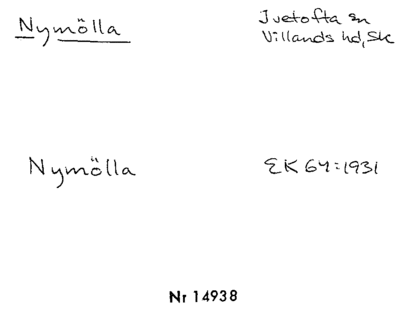 Nymölla
Ivetofta sn
Villands hd, Sk
Nymölla
EK 64:1931
Nr 14938